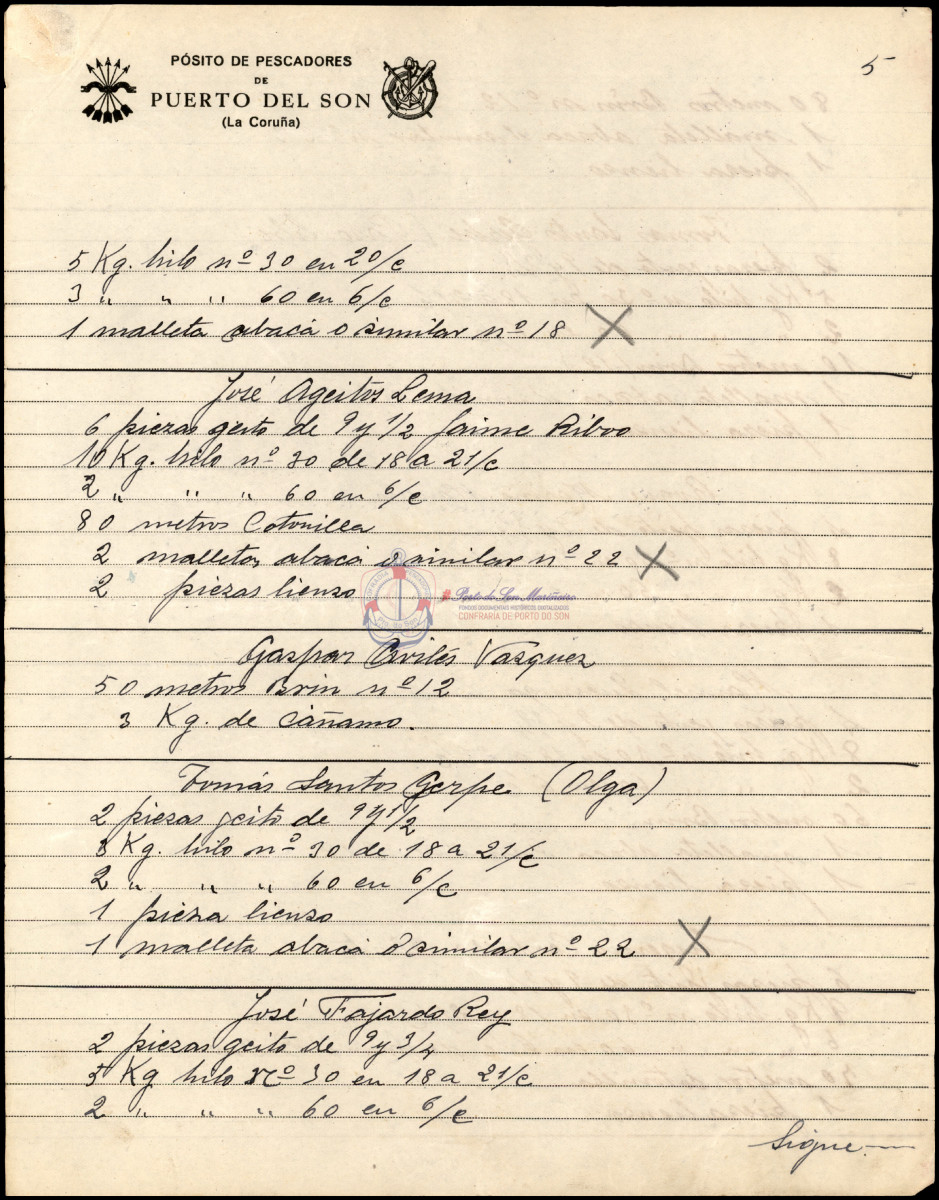 5
PÓSITO DE PESCADORES
DE
PUERTO DEL SON
(La Coruña)
5 Kg. hilo nº 30 en 20/c
3 " " " 60 en 6/c
1 malleta abacá o similar nº 18 X
José Ageitos Lema
6 piezas geito de 9 y 1/2 Jaime Ribó
10 Kg. hilo nº 30 de 18 a 21/c
2 " " " 60 en 6/c
80 metros Cotonilla
2 malletas abacá o similar nº 22 X
2 piezas lienso
Porto do Son Mariñeiro
FONDOS DOCUMENTAIS HISTÓRICOS DIXITALIZADOS
CONFRARIA DE PORTO DO SON
Gaspar Avilés Vazquez
50 metros Brin nº 12
3 Kg. de cáñamo.
Tomás Santos Gerpe (Olga)
2 piezas geito de 9 y 1/2
3 Kg. hilo nº 30 de 18 a 21/c
2 " " " 60 en 6/c
1 pieza lienso
1 malleta abacá o similar nº 22 X
José Fajardo Rey
2 piezas geito de 9 y 3/4
5 Kg hilo nº 30 en 18 a 21/c
2 " " " 60 en 6/c
Sigue